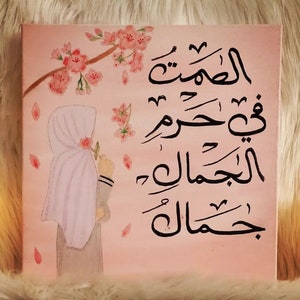 الصمتُ
في حرمِ
الجمالِ
جمالُ